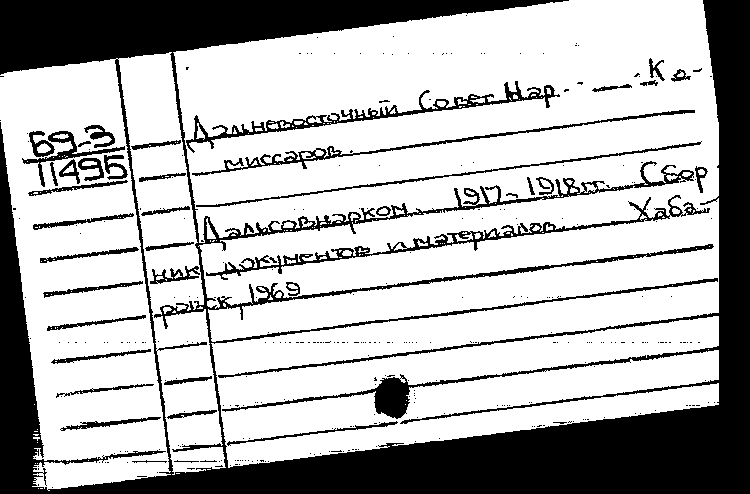 69-3
11495
Дальневосточный Совет Нар. Ко-
миссаров.
Дальсовнарком. 1917-1918гг. Сбор
ник документов и материалов. Хаба-
ровск, 1969